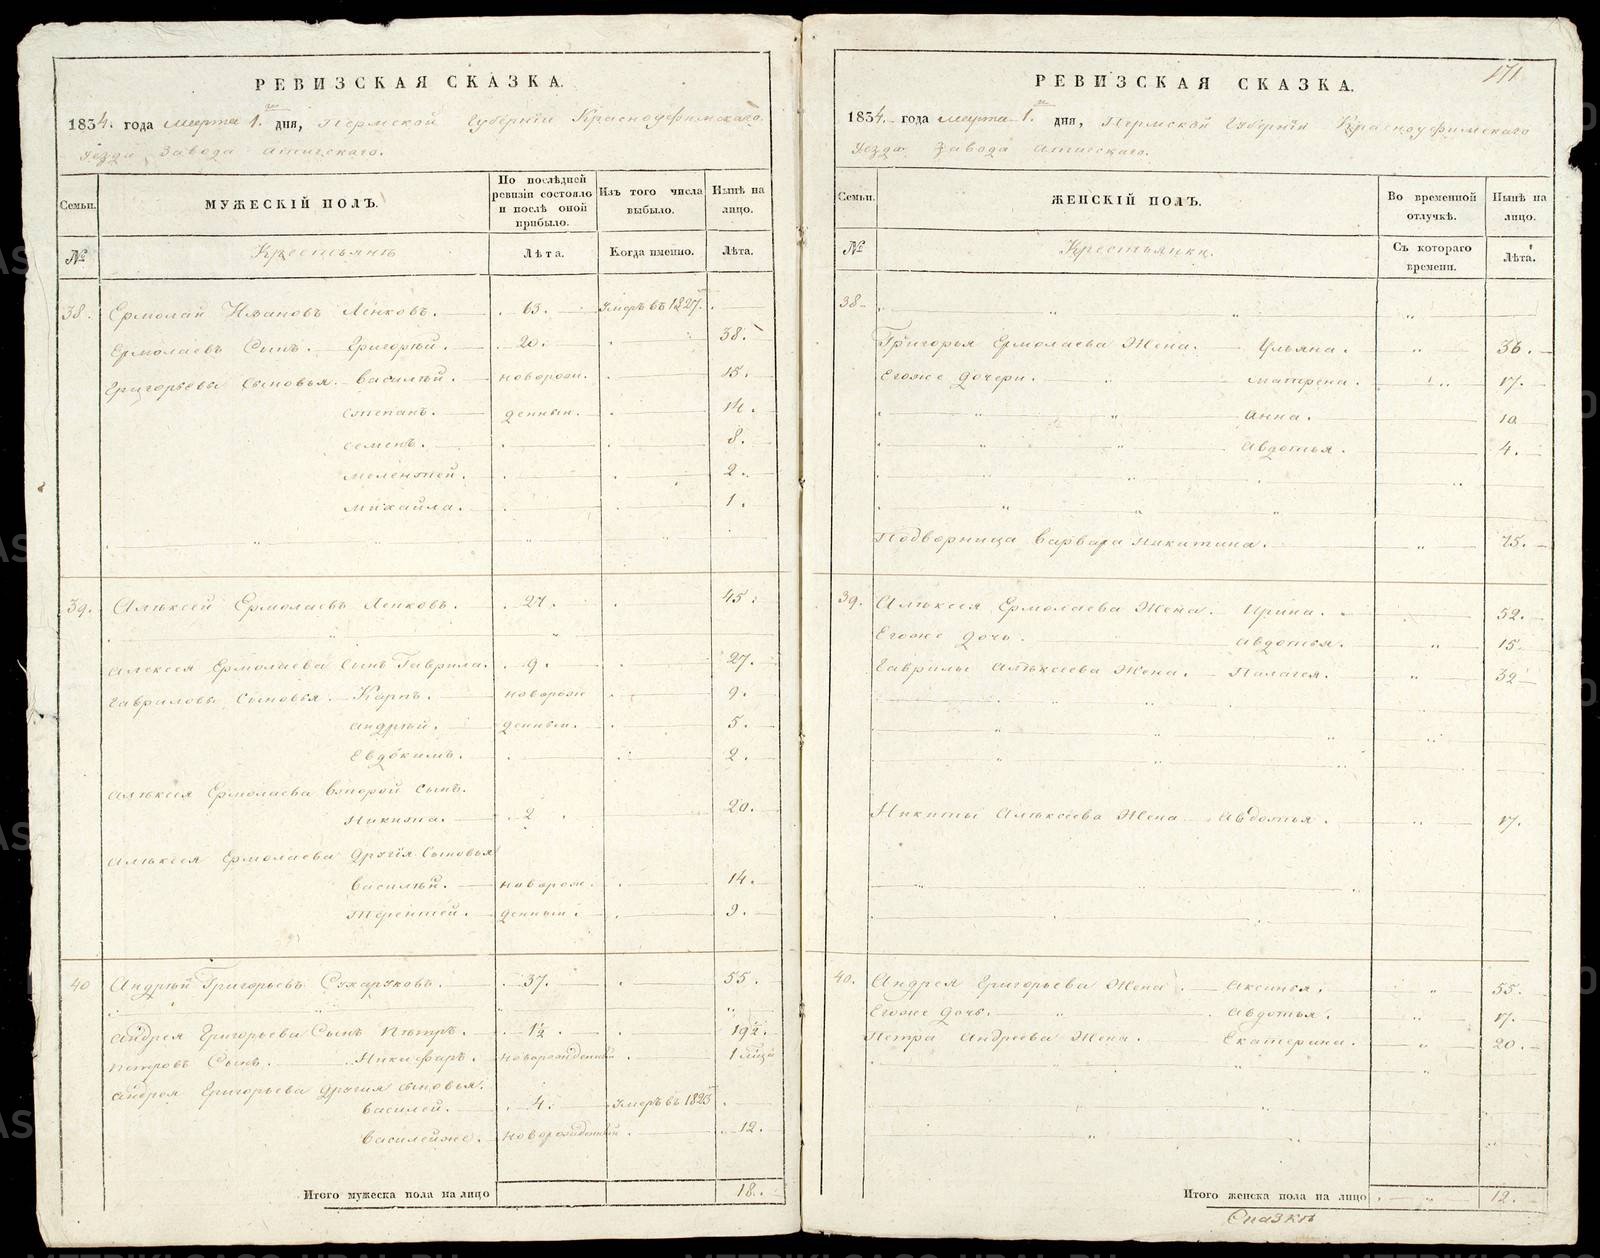 РЕВИЗСКАЯ СКАЗКА.
1834. года марта 1.го дня, Пермской Губернiи Красноуфимскаго
Уезда Завода Атигскаго.
Семьи.
МУЖЕСКIЙ ПОЛЪ.
По послѣдней ревизiи состояло и послѣ оной прибыло.
Изъ того числа выбыло.
Нынѣ на лицо.
№
Крестьянѣ
Лѣта.
Когда именно.
Лѣта.
38. Ермолай Ивановъ Ленковъ. 63. Умерѣ въ 1827.
Ермолаевъ Сынъ. Григорѣй. 20. 38.
Григорьевы Сыновья. Василѣй. новорож. 15.
Степанъ. денным. 14.
Семенъ. 8.
Мелентей. 2.
Михайла. 1.
39. Алѣксей Ермолаевъ Ленковъ. 27. 45.
Алексея Ермолаева Сынъ Гаврила. 9. 27.
Гавриловы Сыновья. Карпъ. новорож 9.
Андрѣй. денным. 5.
Евдокимъ. 2.
Алѣксея Ермолаева Второй Сынъ.
Никита. 2 20.
Алѣксея Ермолаева Другiя Сыновья
Василѣй. новорож. 14.
Терентей. денным. 9.
40 Андрѣй Григорьевъ Сухаруковъ. 37. 55.
Андрея Григорьева Сынъ Пѣтръ. 1½. 19½.
Петровъ Сынъ. Никифаръ. новорожденный 1 лицо
Андрея Григорьева Другия Сыновья.
Василей. 4. Умерѣ въ 1825
Василейже. Новорожденный 12.
Итого мужеска пола на лицо 18.
171
РЕВИЗСКАЯ СКАЗКА.
1834. года марта 1.го дня, Пермской Губернiи Красноуфимскаго
Уезда Завода Атигскаго.
Семьи.
ЖЕНСКIЙ ПОЛЪ.
Во временной отлучкѣ.
Нынѣ на лицо.
№
Крестьянки.
Съ котораго времени.
Лѣта.
38.
Григорья Ермолаева Жена. Ульяна. 36.
Егоже Дочери. Матрена. 17.
Анна. 10
Авдотья. 4.
Подворница Варвара Никитина. 75.
39. Алѣксея Ермолаева Жена. Ирина. 52.
Егоже Дочь. Авдотья. 15
Гаврилы Алѣксеева Жена. Палагея. 32
Никиты Алѣксеева Жена Авдотья. 17.
40. Андрея Григорьева Жена. Аксинья. 55.
Егоже Дочь. Авдотья. 17.
Петра Андреева Жена. Екатерина. 20.
Итого женска пола на лицо 12.
Сказкѣ